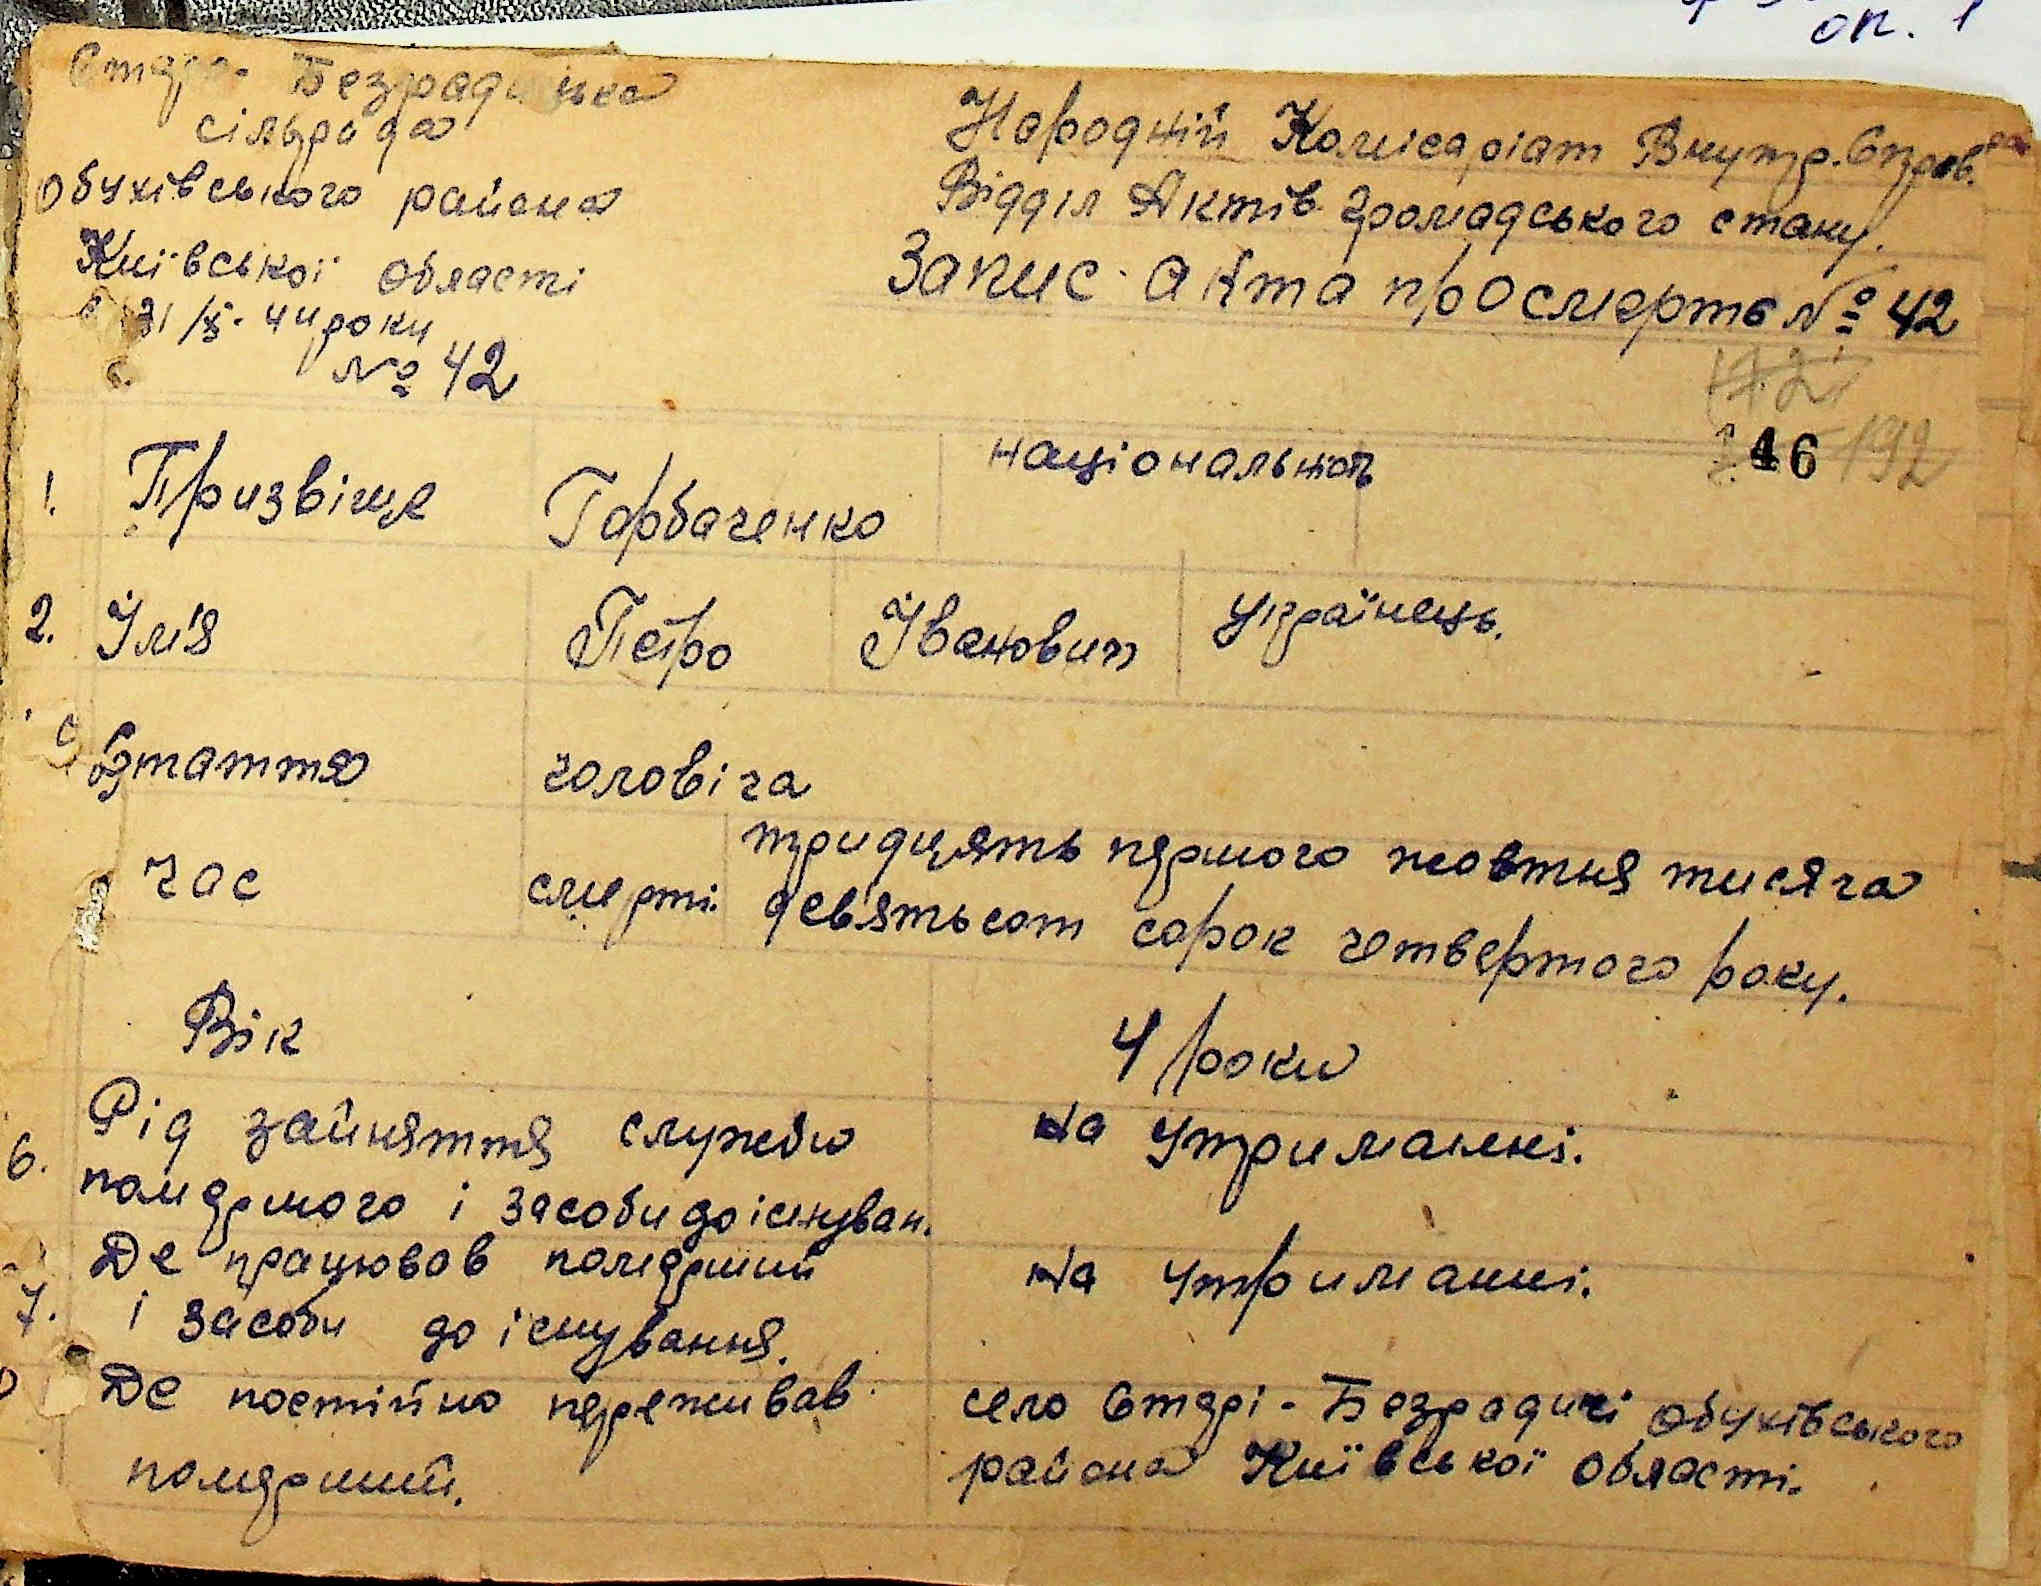 оп. 1
Старо-Безрадицька
сільрада
Обухівського района
Київської області
31/X-44 роки
№ 42
Народній Комісаріат Внутр. Справ.
Відділ Актів громадського стану.
Запис акта про смерть № 42
46 192
1. Призвіще Горбаченко національність
2. Їм'я Петро Їванович українець.
Стаття чоловіча
Час смерті. тридцять першого жовтня тисяча
девятьсот сорок четвертого року.
Вік 4 роки
6. Рід зайняття службы на утриманні.
помершого і засоби до існуван.
7. Де працював померший на утриманні.
і засоби до існування.
Де постійно переживав село Старі-Безрадичі Обухівського
померший. района Київської області.